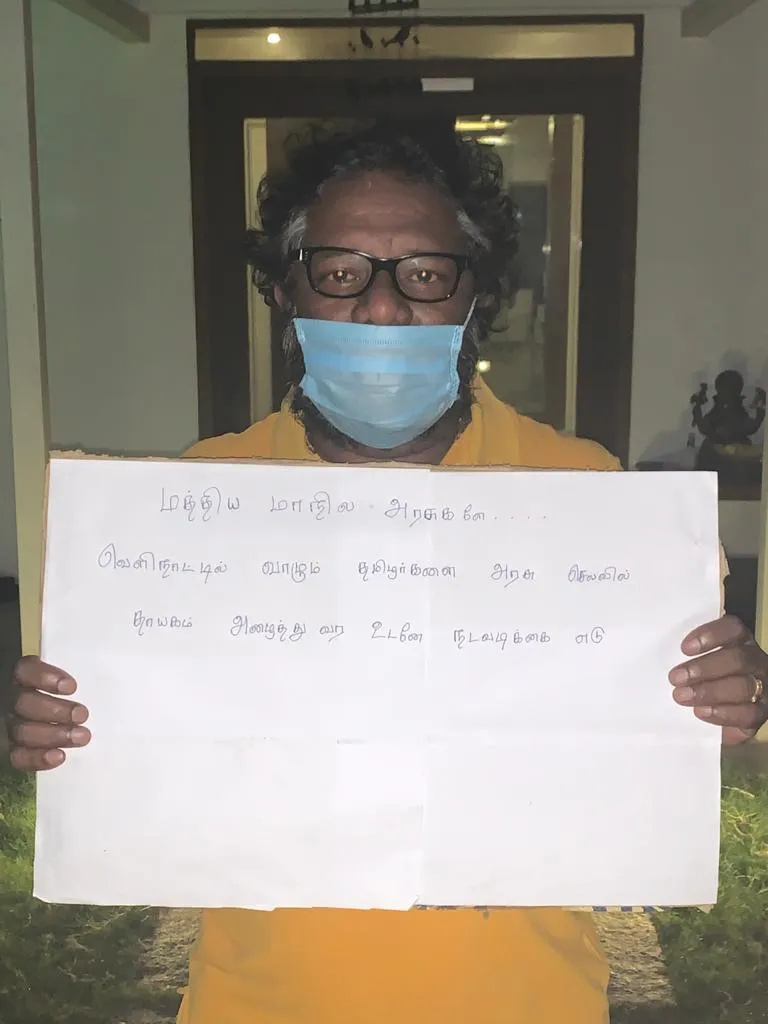 மத்திய மாநில அரசுகளே....
வெளிநாட்டில் வாழும் தமிழர்களை அரசு செலவில்
தாயகம் அழைத்து வர உடனே நடவடிக்கை எடு